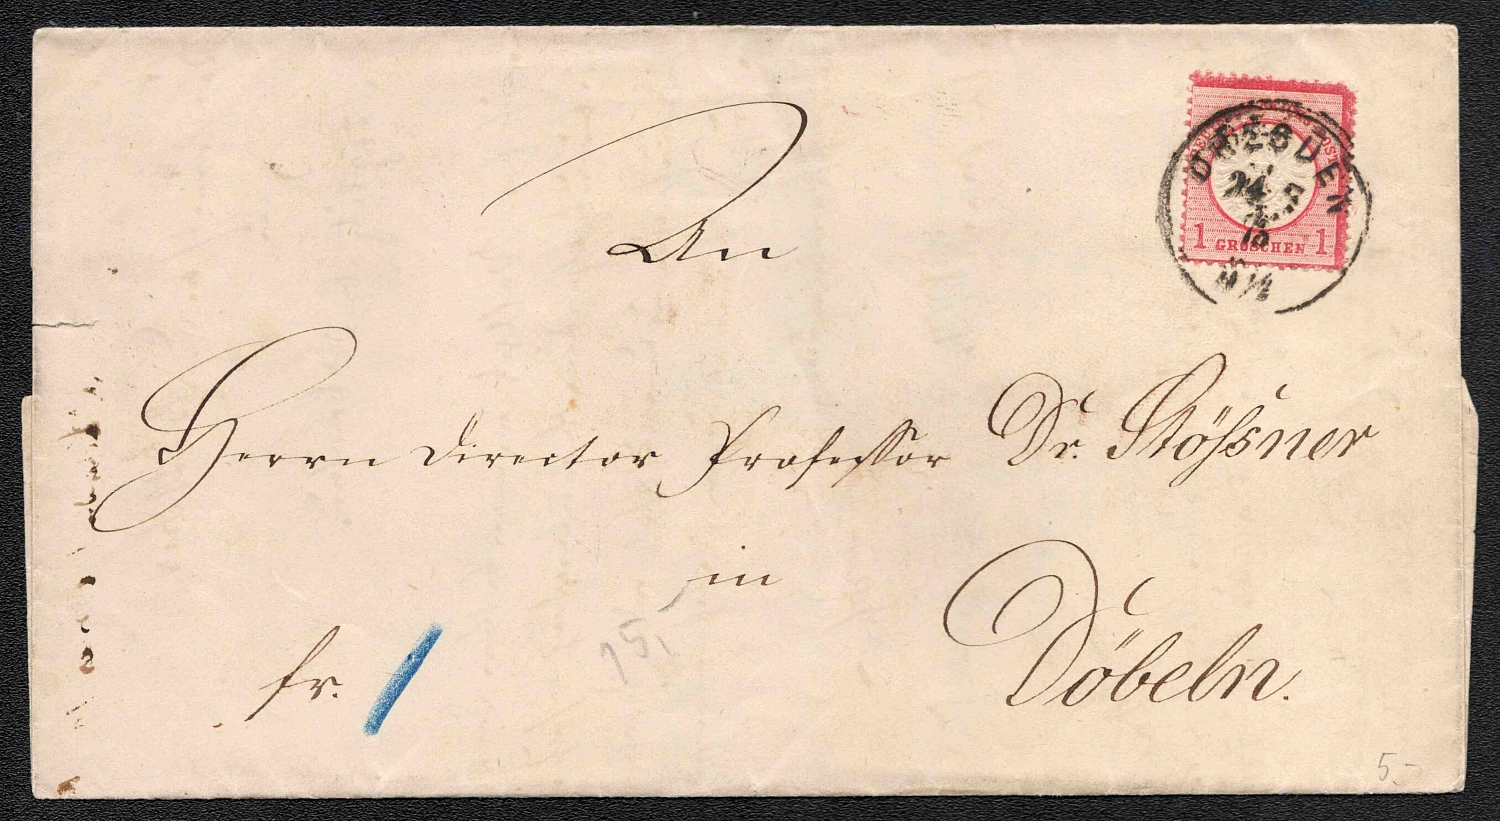 DRESDEN
24
1 GROSCHEN 1
An
Herrn Director Professor Dr. Stössner
in
Döbeln.
fr. 1
75,-
5-